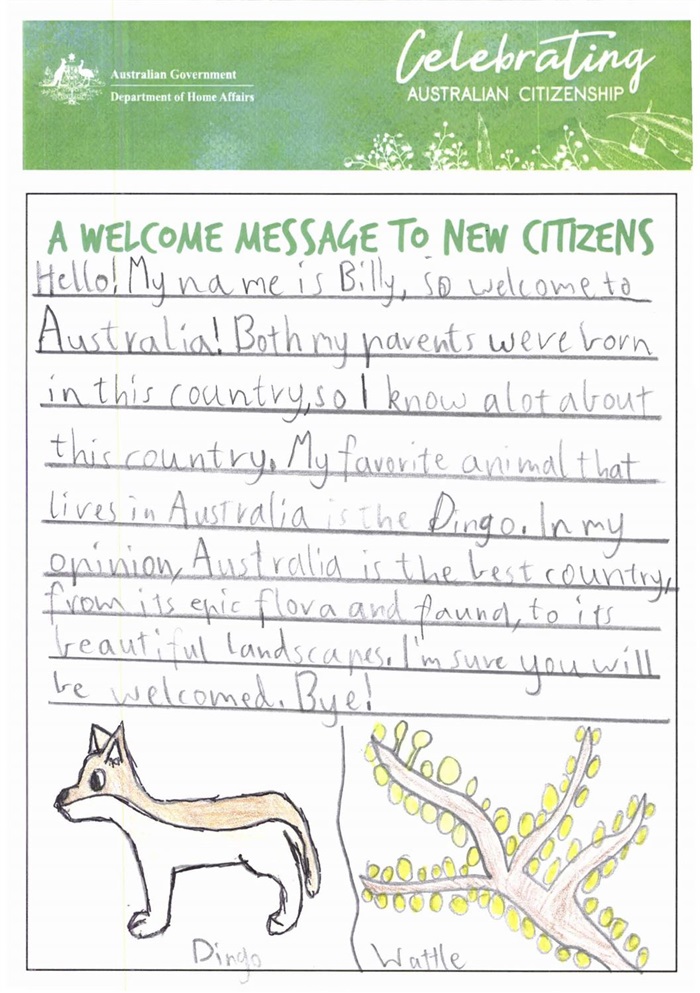 Australian Government
Department of Home Affairs
Celebrating
AUSTRALIAN CITIZENSHIP
A WELCOME MESSAGE TO NEW CITIZENS
Hello! My name is Billy, so welcome to
Australia! Both my parents were born
in this country, so I know alot about
this country. My favorite animal that
lives in Australia is the Dingo. In my
opinion, Australia is the best country,
from its epic flora and fauna, to its
beautiful landscapes. I'm sure you will
be welcomed. Bye!
Dingo
Wattle